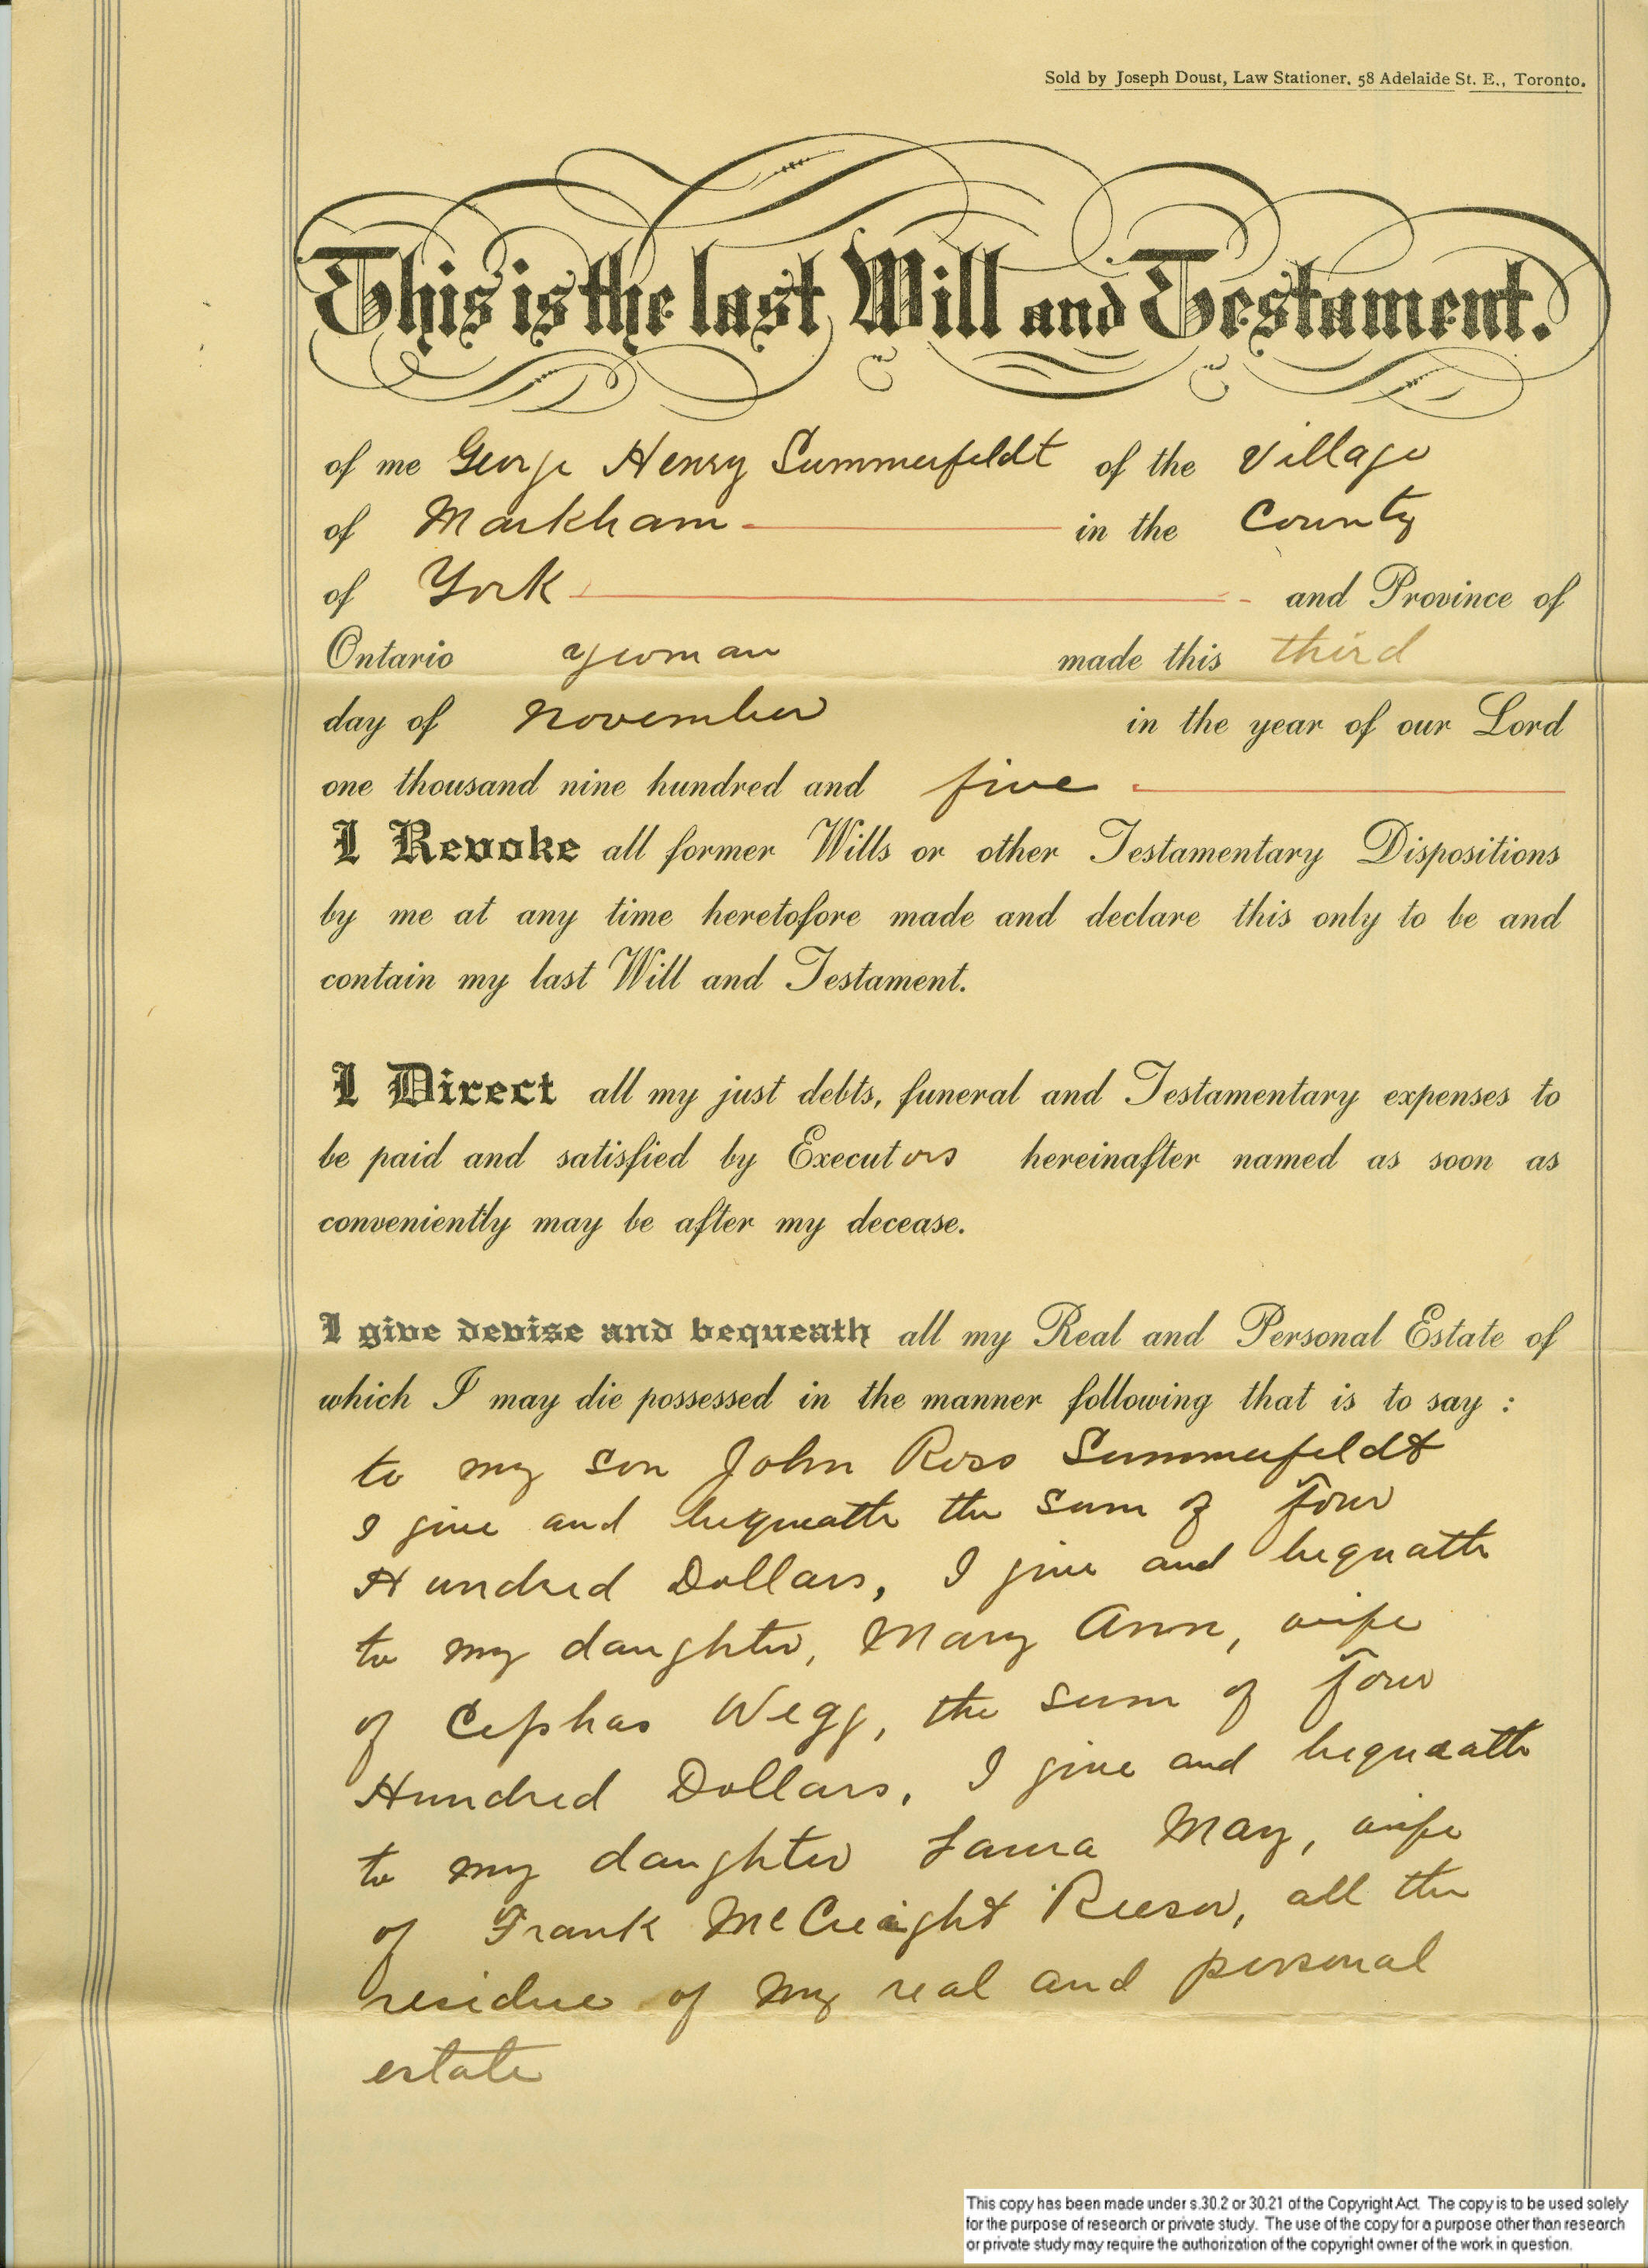 Sold by Joseph Doust, Law Stationer, 58 Adelaide St. E., Toronto.
This is the last Will and Testament.
of me George Henry Summerfeldt of the Village
of Markham in the County
of York and Province of
Ontario yeoman made this third
day of November in the year of our Lord
one thousand nine hundred and five
I Revoke all former Wills or other Testamentary Dispositions
by me at any time heretofore made and declare this only to be and
contain my last Will and Testament.
I Direct all my just debts, funeral and Testamentary expenses to
be paid and satisfied by Executors hereinafter named as soon as
conveniently may be after my decease.
I give devise and bequeath all my Real and Personal Estate of
which I may die possessed in the manner following that is to say :
to my son John Ross Summerfeldt
I give and bequeath the sum of Four
Hundred Dollars, I give and bequeath
to my daughter, Mary Ann, wife
of Cephas Wegg, the sum of Four
Hundred Dollars, I give and bequeath
to my daughter Laura May, wife
of Frank McCreight Reesor, all the
residue of my real and personal
estate
This copy has been made under s.30.2 or 30.21 of the Copyright Act. The copy is to be used solely
for the purpose of research or private study. The use of the copy for a purpose other than research
or private study may require the authorization of the copyright owner of the work in question.